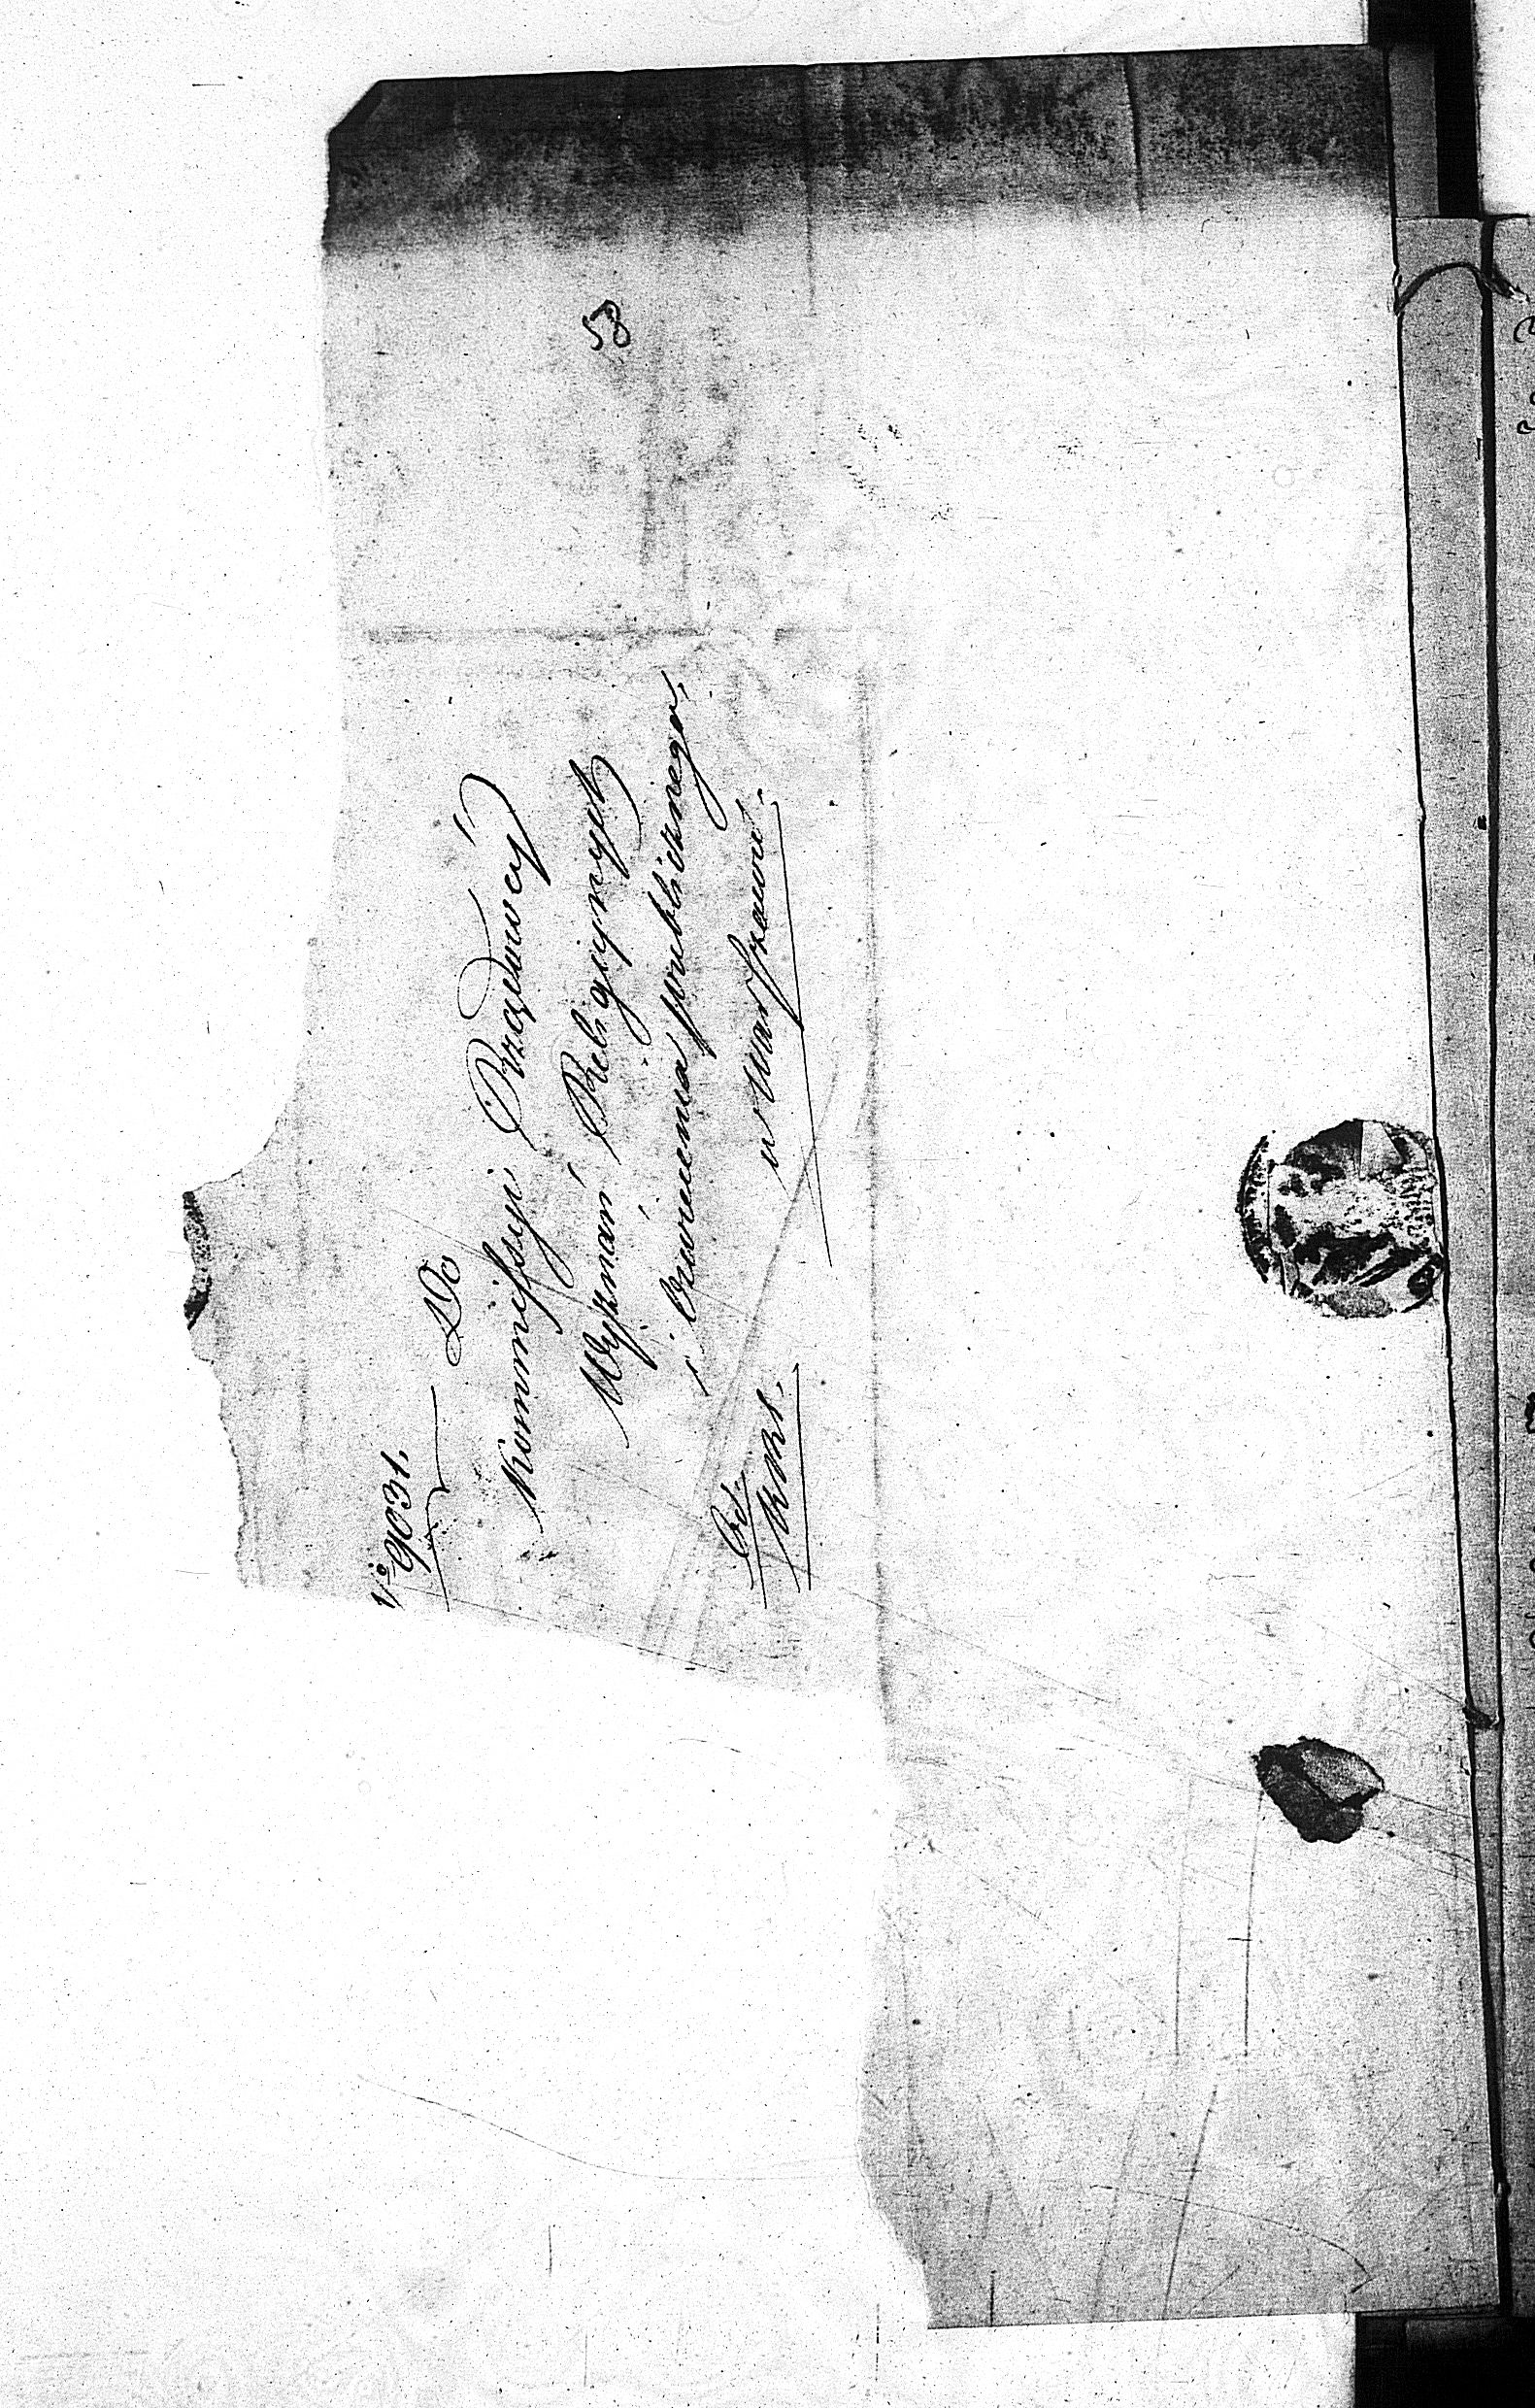 58
No 9031.
Do
Kommissyi Rządowéy
Wyznań Religiynych
i Oświecenia publicznego,
w Warszawie.